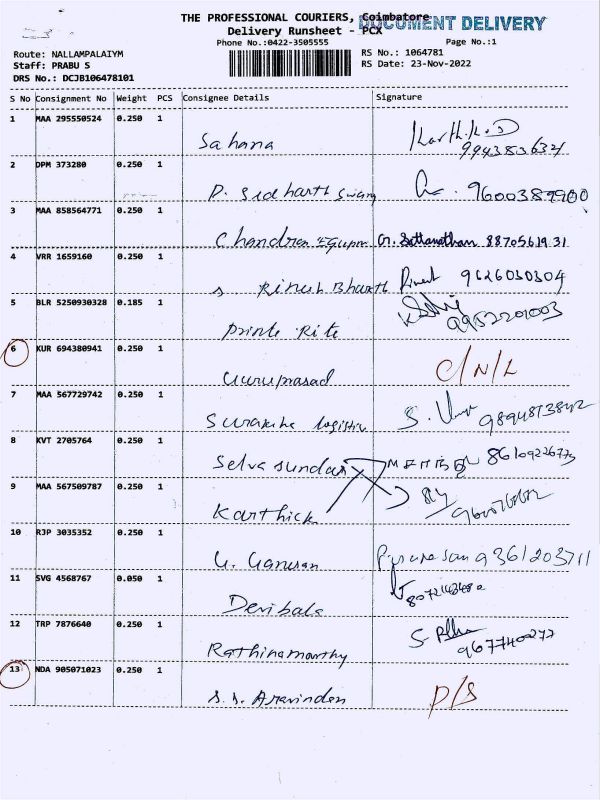 THE PROFESSIONAL COURIERS, Coimbatore
DOCUMENT DELIVERY
Delivery Runsheet - PCX
Phone No.:0422-3505555 Page No.:1
Route: NALLAMPALAIYM RS No.: 1064781
Staff: PRABU S RS Date: 23-Nov-2022
DRS No.: DCJB106478101
S No Consignment No Weight PCS Consignee Details Signature
1 MAA 295550524 0.250 1
Sahana Karthik.D
9943836321
2 DPM 373280 0.250 1
D. Sidharth Swamy 9600389900
3 MAA 858564771 0.250 1
Chandran G. Settanathan 8870561931
4 VRR 1659160 0.250 1
S Rinesh Bharath Rinesh 9626030304
5 BLR 5250930328 0.185 1
Printe Rite 9952201003
6 KUR 694380941 0.250 1
Guruprasad C/N/L
7 MAA 567729742 0.250 1
Suraksha logistic S.
8 KVT 2705764 0.250 1
Selva sundar 8610922677
9 MAA 567509787 0.250 1
Karthick
10 RJP 3035352 0.250 1
G. Ganesan 9361203711
11 SVG 4568767 0.050 1
Devibala
12 TRP 7876640 0.250 1
Rathinamoorthy 9677740277
13 NDA 905071023 0.250 1
S.S. Aravinden P/S